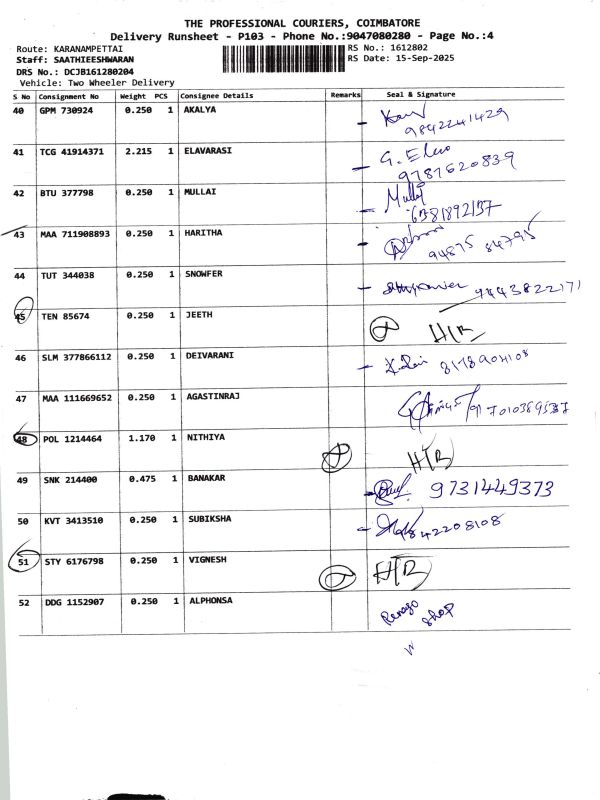 THE PROFESSIONAL COURIERS, COIMBATORE
Delivery Runsheet - P103 - Phone No.:9047080280 - Page No.:4
Route: KARANAMPETTAI RS No.: 1612802
Staff: SAATHIEESHWARAN RS Date: 15-Sep-2025
DRS No.: DCJB161280204
Vehicle: Two Wheeler Delivery
S No Consignment No Weight PCS Consignee Details Remarks Seal & Signature
40 GPM 730924 0.250 1 AKALYA
9842241429
41 TCG 41914371 2.215 1 ELAVARASI
9787620839
42 BTU 377798 0.250 1 MULLAI Mullai
6381892137
43 MAA 711908893 0.250 1 HARITHA
94875 84795
44 TUT 344038 0.250 1 SNOWFER
9443822171
45 TEN 85674 0.250 1 JEETH HTB
46 SLM 377866112 0.250 1 DEIVARANI 8178904108
47 MAA 111669652 0.250 1 AGASTINRAJ
48 POL 1214464 1.170 1 NITHIYA HTB
49 SNK 214400 0.475 1 BANAKAR 9731449373
50 KVT 3413510 0.250 1 SUBIKSHA 9842208108
51 STY 6176798 0.250 1 VIGNESH HTB
52 DDG 1152907 0.250 1 ALPHONSA
shop